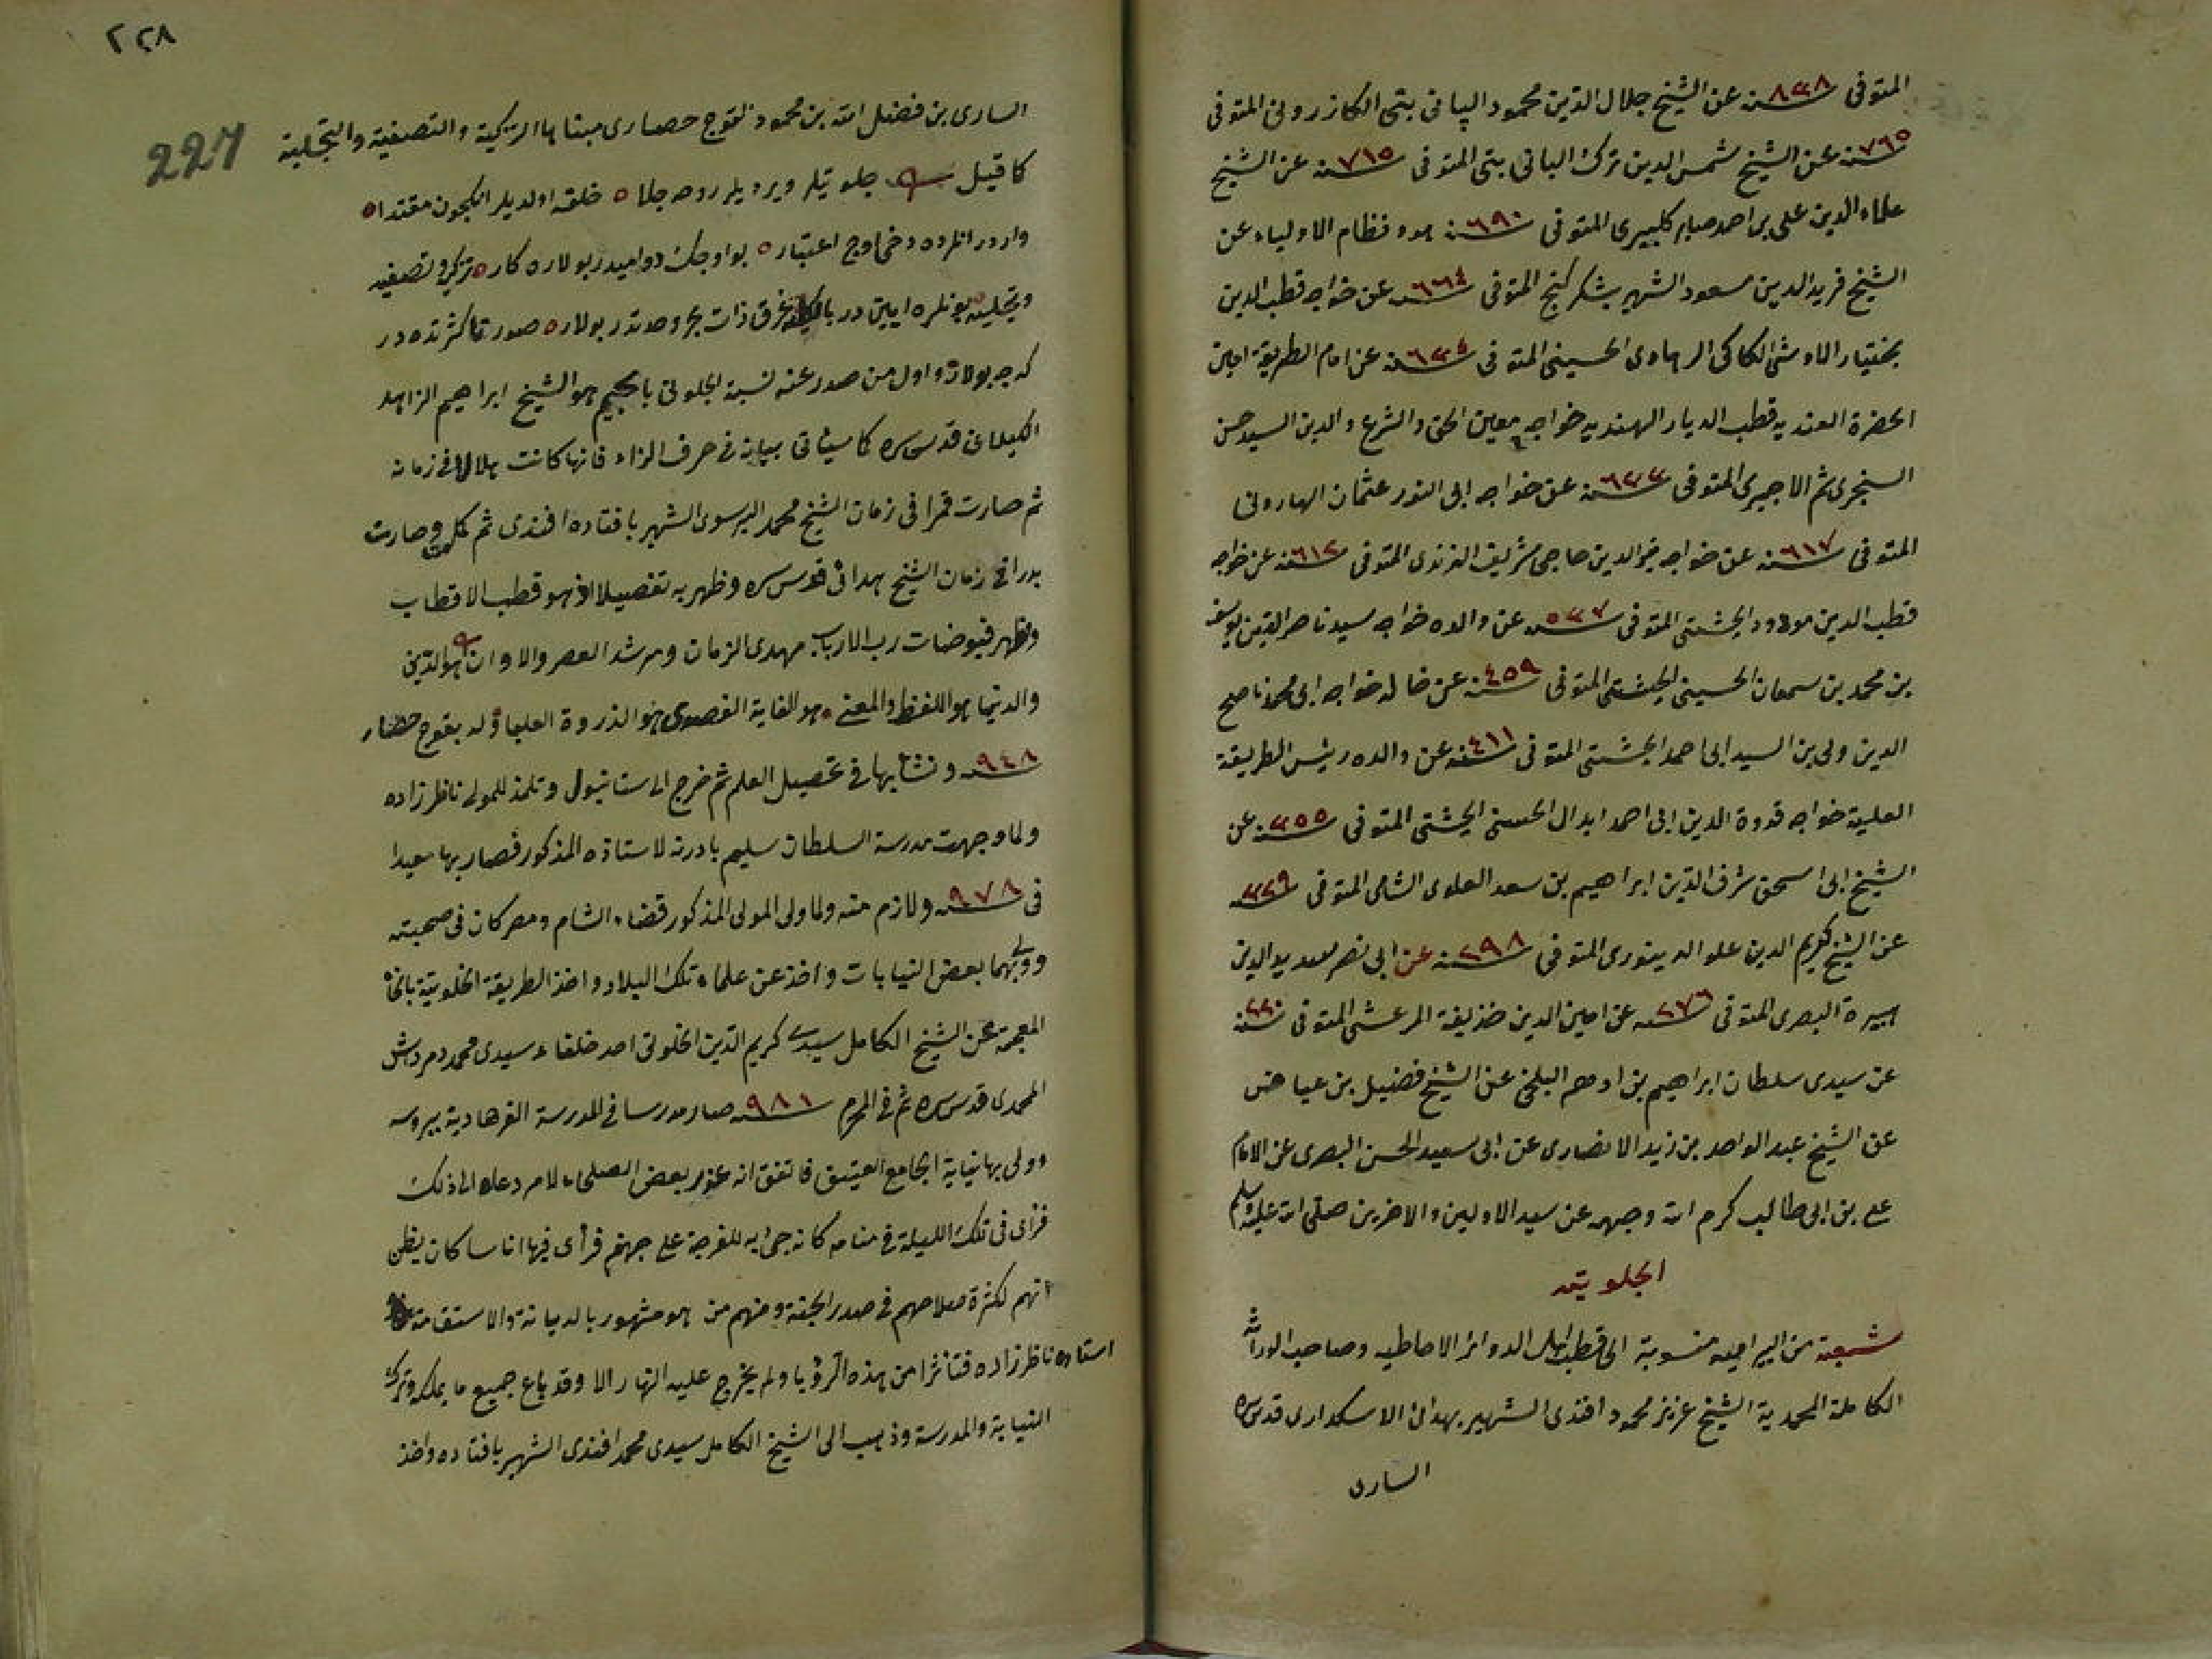 المتوفى سنة ٨٣٨ عن الشيخ جلال الدين محمود البانى بتى الكازرونى المتوفى
سنة ٧٦٥ عن الشيخ شمس الدين ترك البانى بتى المتوفى سنة ٧١٥ عن الشيخ
علاء الدين على بن احمد صابر كلييرى المتوفى سنة ٦٩٠ هو و نظام الاولياء عن
الشيخ فريد الدين مسعود الشهير بشكر كنج المتوفى سنة ٦٦٤ عن خواجه قطب الدين
بختيار الاوشى الكاكى الرهاوى الحسينى المتوفى سنة ٦٣٤ عن امام الطريقة امين
الحضرة العنديه قطب الديار الهنديه خواجه معين الحق والشرع والدين السيد حسن
السنجرى ثم الاجميرى المتوفى سنة ٦٣٣ عن خواجه ابى النور عثمان الهارونى
المتوفى سنة ٦١٧ عن خواجه حاجى شريف الزندى المتوفى سنة ٦١٢ عن خواجه
قطب الدين مودود الجشتى المتوفى سنة عن والده خواجه سيد ناصر الدين يوسف
بن محمد بن سمعان الحسينى الجشتى المتوفى سنة ٤٥٩ عن خاله خواجه ابى محمد ناصح
الدين ولى بن السيد ابى احمد الجشتى المتوفى سنة ٤١١ عن والده رئيس الطريقة
العلية خواجه قدوة الدين ابى احمد ابدال الحسنى الجشتى المتوفى سنة ٣٥٥ عن
الشيخ ابى اسحق شرف الدين ابراهيم بن سعد العلوى الشامى المتوفى سنة ٣٢٩
عن الشيخ كريم الدين علو الدينورى المتوفى سنة ٢٩٨ عن ابى نصر سديد الدين
هبيرة البصرى المتوفى سنة ٢٧٦ عن امين الدين حذيفة المرعشى المتوفى سنة
عن سيدى سلطان ابراهيم بن ادهم البلخى عن الشيخ فضيل بن عياض
عن الشيخ عبد الواحد بن زيد الانصارى عن ابى سعيد الحسن البصرى عن الامام
على بن ابى طالب كرم الله وجهه عن سيد الاولين والاخرين صلى الله عليه وسلم
الجلوتيه
شعبة من البيراميه منسوبة الى قطب اهل الدوائر الاحاطيه وصاحب الوراثة
الكاملة المحمدية الشيخ عزيز محمود افندى الشهير بهدائى الاسكدارى قدس سره
السارى
٢٢٨
227
السارى بن فضل الله بن محمود لقوج حصارى مبناها التزكية والتصفية والتجلية
كما قيل جلوتيلر ويرديلر روحه جلا خلقه اولديلر انكجون مقتدا
واردر انلرده دخى اوج اعتبار بو اوجك دوامیدر بولاره كار تزكيه و تصفيه
وتجليه بونلره ايين در بالكليه غرق ذات بحر وحدتدر بولار صورتا كثرتده در
كرچه بولار واول من صدر عنه نسبة الجلوتى بالجيم هو الشيخ ابراهيم الزاهد
الكيلانى قدس سره كما سيأتى بيانه فى حرف الزاء فانها كانت هلالا فى زمانه
ثم صارت قمرا فى زمان الشيخ محمد البرسوى الشهير بافتاده افندى ثم كملت وصارت
بدرا فى زمان الشيخ هدائى قدس سره وظهر به تفصيلا اذ هو قطب الاقطاب
ومظهر فيوضات رب الارباب مهدى الزمان ومرشد العصر والاوان هو الدين
والدنيا هو اللفظ والمعنى هو الغاية القصوى هو الذروة العليا ولد بقوج حصار
سنة ٩٤٨ ونشأ بها فى تحصيل العلم ثم خرج الى ستانبول وتلمذ للمولى ناظر زاده
ولما وجهت مدرسة السلطان سليم بادرنه لاستاذه المذكور فصار بها معيدا
فى سنة ٩٧٨ ولازم منه ولما ولى المولى المذكور قضاء الشام ومصر كان فى صحبته
وولى بهما بعض النيابات واخذ عن علماء تلك البلاد واخذ الطريقة الخلوتية بالخاء
المعجمة عن الشيخ الكامل سيدى كريم الدين الخلوتى احد خلفاء سيدى محمد دمرداش
المحمدى قدس سره ثم فى المحرم سنة ٩٨١ صار مدرسا فى المدرسة الفرهادية ببروسه
وولى بها نيابة الجامع العتيق فاتفق انه عزر بعض الصلحاء لامر دعاه الى ذلك
فرأى فى تلك الليلة فى منامه كانه جئ به للفرجة على جهنم فرأى فيها اناسا كان يظن
انهم لكثرة صلاحهم فى صدر الجنة ومنهم من هو مشهور بالديانة والاستقامة
استاده ناظر زاده فتاثرا من هذه الرؤيا ولم يخرج عليه النهار الا وقد باع جميع ما يملكه وترك
النيابة والمدرسة وذهب الى الشيخ الكامل سيدى محمد افندى الشهير بافتاده واخذ